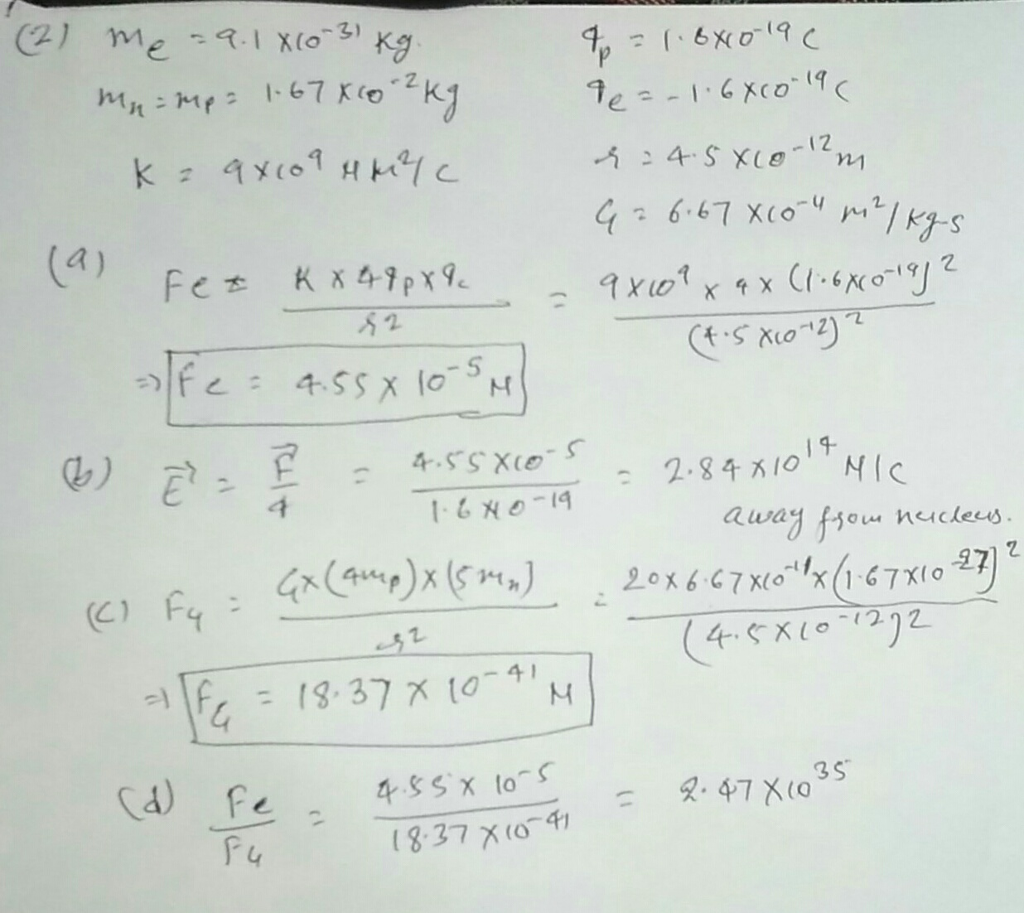 (2) me = 9.1 x10^-31 kg. qp = 1.6x10^-19 C
mn = mp = 1.67 x10^-2 kg qe = -1.6x10^-19 C
K = 9x10^9 N m^2/C r = 4.5 x10^-12 m
G = 6.67 x10^-11 m^2/kg-s
(a) Fe = K x 4qp x qe / r^2 = 9x10^9 x 4 x (1.6x10^-19)^2 / (4.5 x10^-12)^2
=> Fe = 4.55 x 10^-5 N
(b) E→ = F→/q = 4.55x10^-5 / 1.6x10^-19 = 2.84x10^14 N/C
away from nucleus.
(c) FG = Gx(4mp)x(5mn) / r^2 = 20x6.67x10^-11x(1.67x10^-27)^2 / (4.5x10^-12)^2
=> FG = 18.37 x 10^-41 N
(d) Fe/FG = 4.55x10^-5 / 18.37x10^-41 = 2.47x10^35